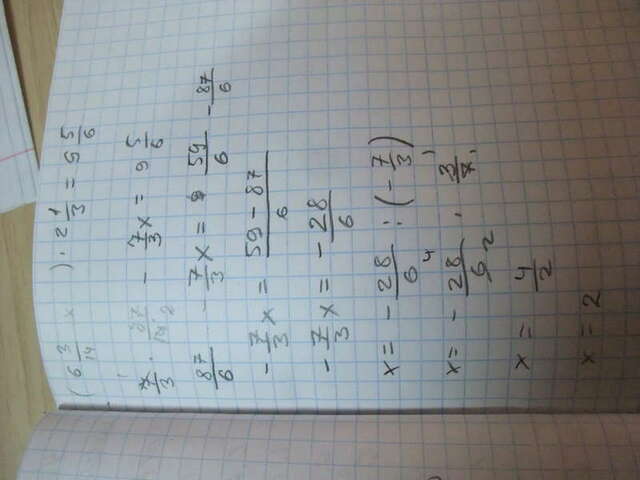 (6 3/14 x) · 2 1/3 = 9 5/6
7/3 · 87/14 2 - 7/3 x = 9 5/6
87/6 - 7/3 x = 59/6 - 87/6
- 7/3 x = 59 - 87/6
- 7/3 x = - 28/6
x = - 28/6 : (- 7/3)
x = - 28 4/6 2 · 3 1/7 1
x = 4/2
x = 2